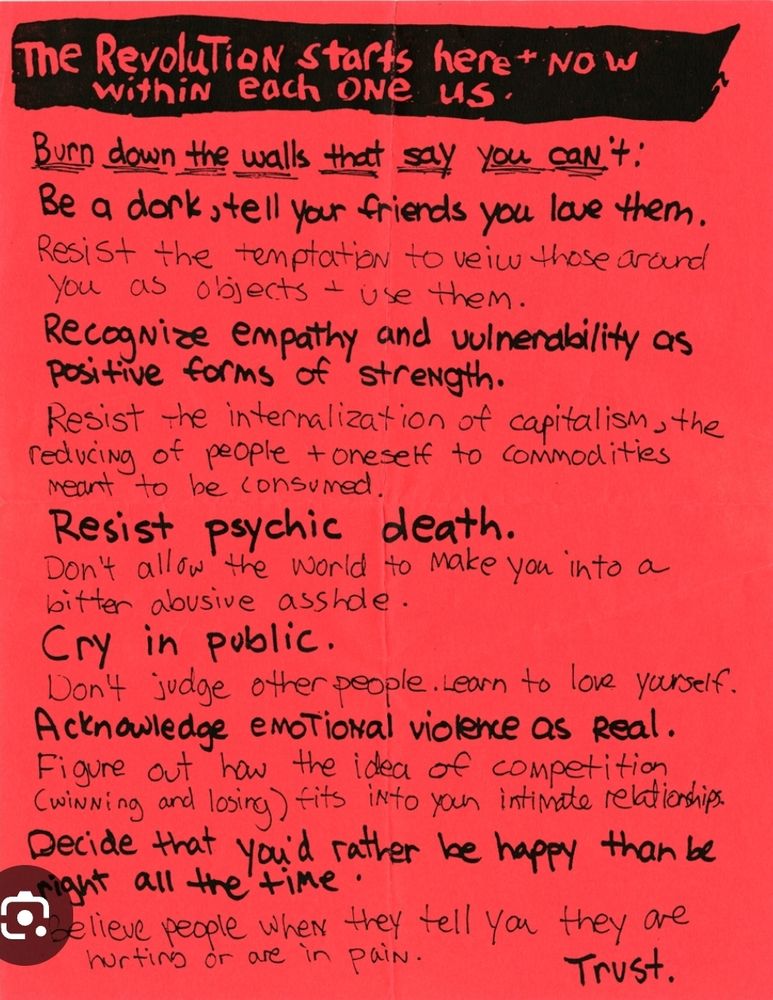 The Revolution starts here + now
within each one us.
Burn down the walls that say you can't:
Be a dork, tell your friends you love them.
Resist the temptation to veiw those around
you as objects + use them.
Recognize empathy and vulnerability as
positive forms of strength.
Resist the internalization of capitalism, the
reducing of people + oneself to commodities
meant to be consumed.
Resist psychic death.
Don't allow the world to make you into a
bitter abusive asshole.
Cry in public.
Don't judge other people. Learn to love yourself.
Acknowledge emotional violence as real.
Figure out how the idea of competition
(winning and losing) fits into your intimate relationships.
Decide that you'd rather be happy than be
right all the time.
Believe people when they tell you they are
hurting or are in pain.
Trust.